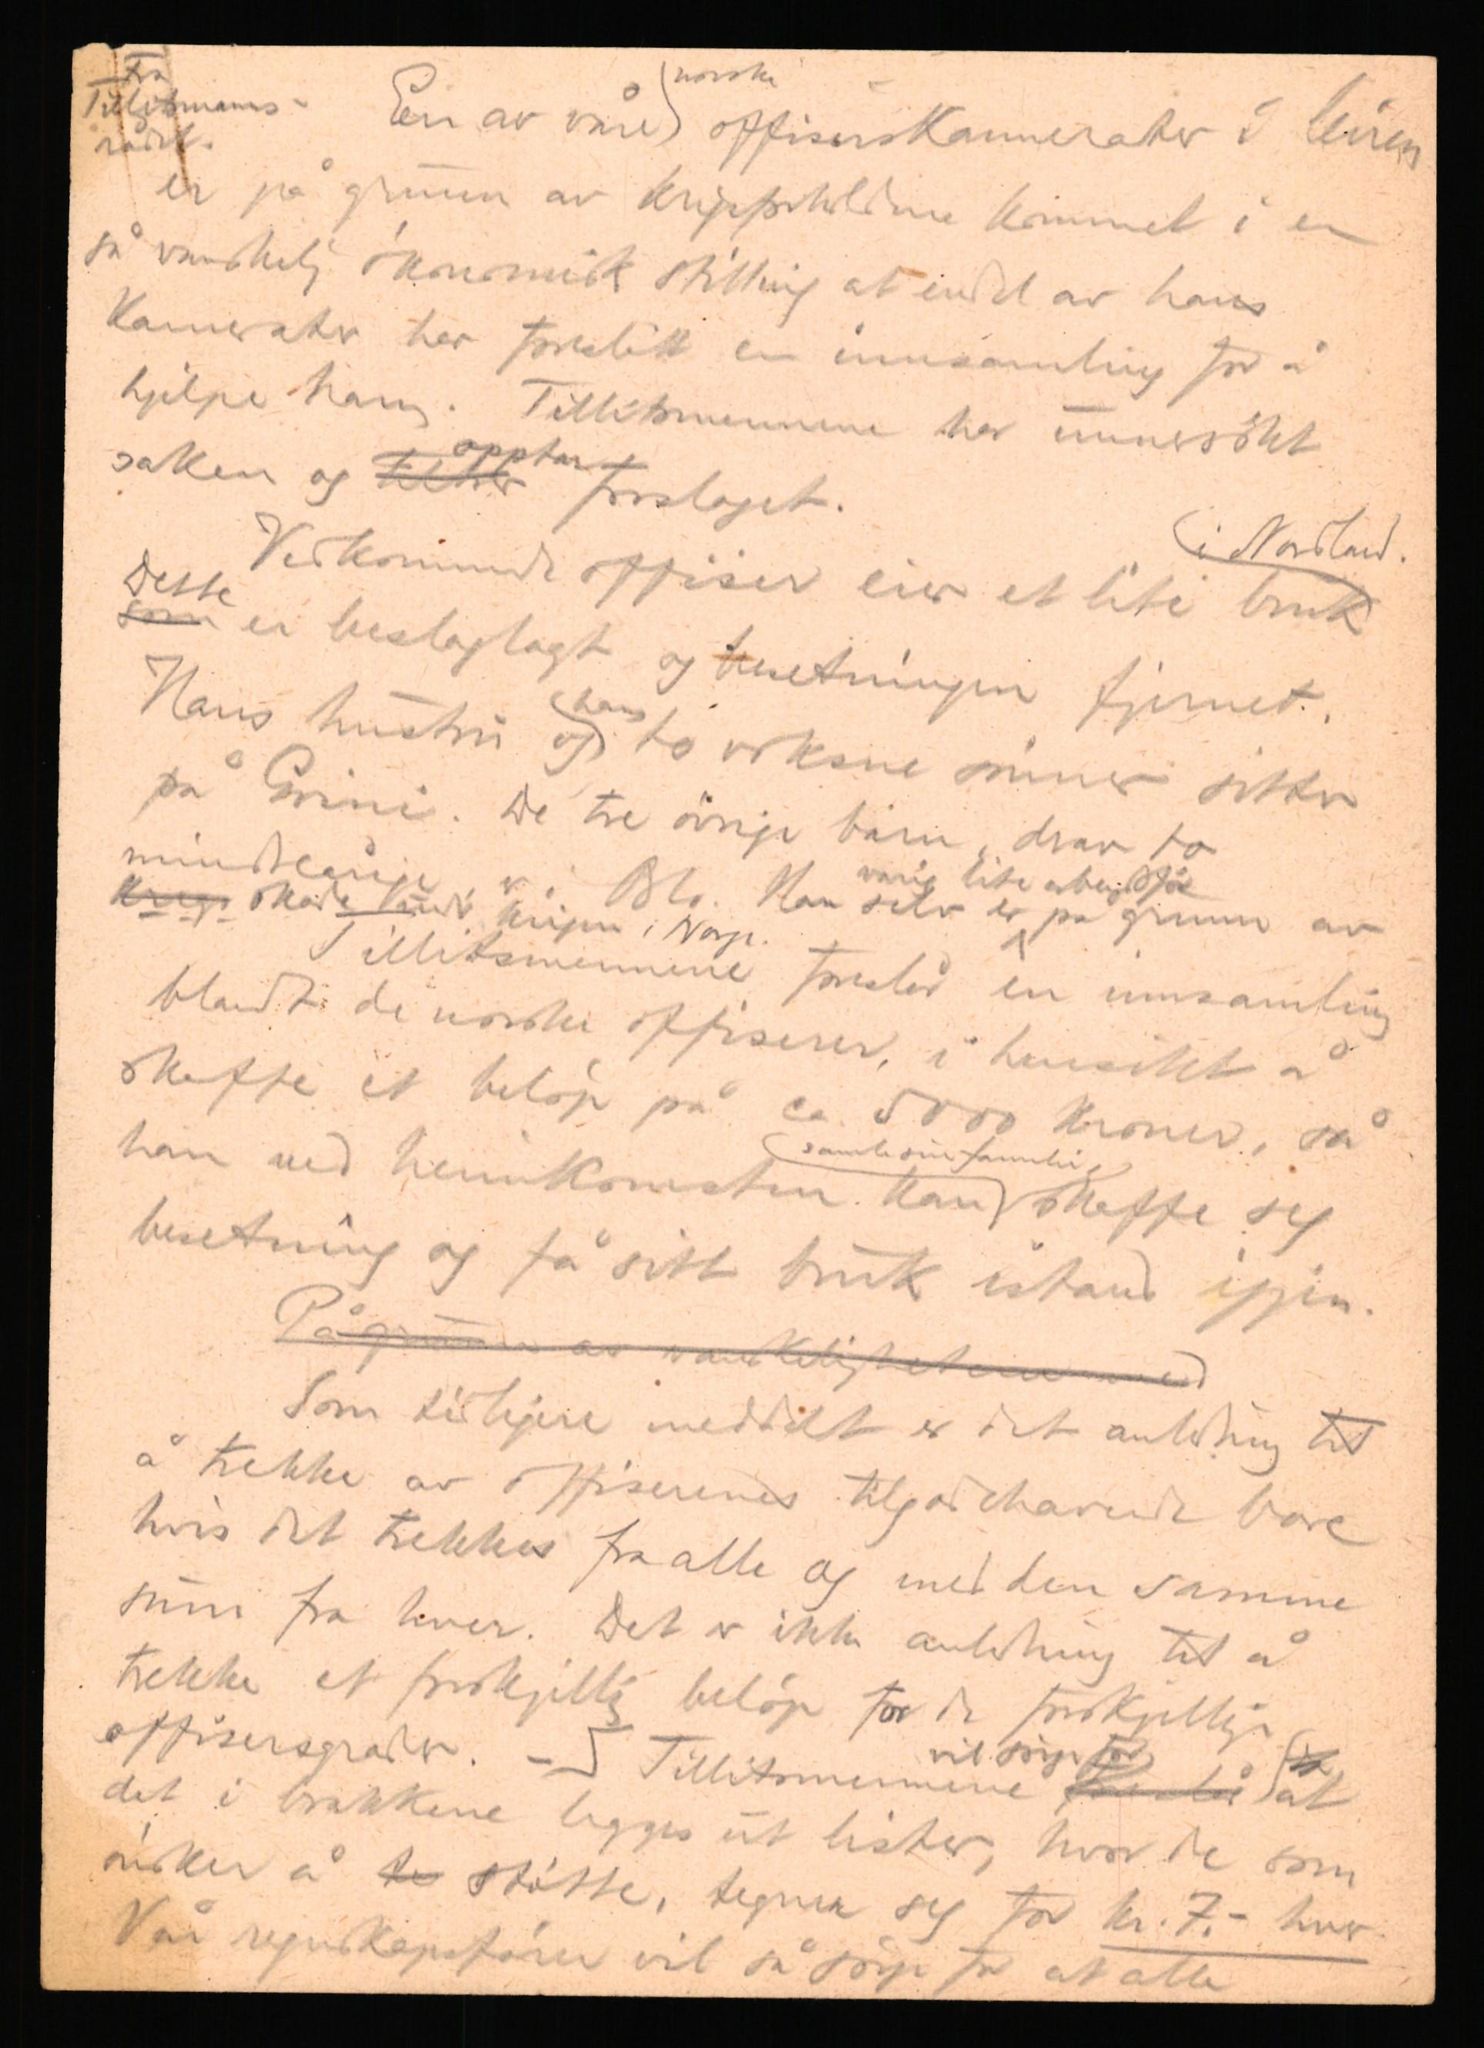 Fra
Tillitsmanns-
rådet.
En av våre norske offiserskamerater i leiren
er på grunn av krigsforholdene kommet i en
så vanskelig ökonomisk stilling at endel av hans
kamerater har foreslått en innsamling for å
hjelpe ham. Tillitsmennene har unnersökt
saken og opptar forslaget.
Vedkommende offiser eier et lite bruk i Nordland.
Dette er beslaglagt og besetningen fjernet.
Hans hustru og hans to voksne sönner sitter
på Grini. De tre övrige barn, derav to
mindreårige er i Oslo. Han selv er varig lite arbeidsför på grunn av
skade under krigen i Norge.
Tillitsmennene foreslår en innsamling
blandt de norske offiserer, i hensikt å
skaffe et belöp på ca 5000 kroner, så
han ved hjemkomsten kan samle sin familie skaffe seg
besetning og få sitt bruk istand igjen.
På grunn av vanskelighetene med
Som tidligere meddelt er det anledning til
å trekke av offiserenes tilgodehavende bare
hvis det trekkes fra alle og med den samme
sum fra hver. Det er ikke anledning til å
trekke et forskjellig belöp for de forskjellige
offisersgrader. - Tillitsmennene vil sörge for at
det i brakkene legges ut lister, hvor de som
önsker å stötte, tegner seg for kr. 7.- hver
Vår regnskapsförer vil så sörge for at alle